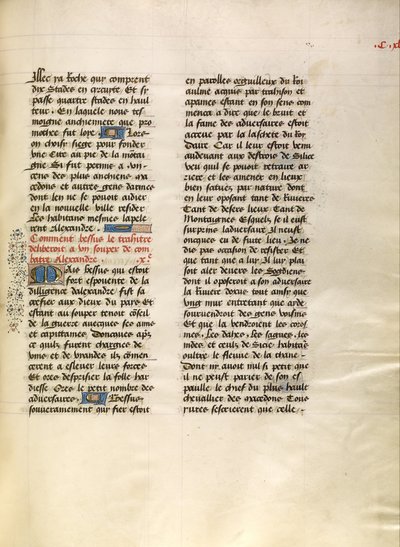 .C. xl
Illec ya Roche quy comprent
dix Stades en circuyte Et sy
passe quatre stades en haul
teur . En laquelle nous tes
moigne anchiennete que pro
mothee fut loye . Lors
on choisy siege pour fonder
une Cite au pie de la mõtai
gne Si fut permis a .vij.
cens des plus anchiens ma
cedons et autres gens darmes
dont len ne se pouoit aidier
en la nouvelle ville resider
Les habitans mesmes lapele
rent Alexandre .
Comment bessus le trahitre
deliberoit a un souper de com
batre Alexandre . x.e
Mais bessus qui estoit
fort espouente de la
dilligence dalexandre fist sa
crefier aux dieux du pays Et
estant au souper tenoit cõseil
de la guerre avecques ses amis
et capittaines Doncques aps
ce quilz furent chargies de
vins et de viandes ilz cõmen
cerent a eslever leurs forces
Et ores desprisier la folle har
diesse Ores le petit nombre des
adversaires . Bessus
souverainement qui fier estoit
en parolles orguilleux du Roi
aulme acquis par trahison et
apaines estant en son sens com
menca a dire que le bruit et
la fame des adversaires estoit
acreue par la lachete du Roy
Daire . Car il leur estoit venu
audevant aux destrois de Silice
veu quil se pouoit retraire ar
riere et les amener en lieux
bien seures par nature dont
en leur oposant tant de Rivieres
Tant de desers lieux Tant de
Montaignes Esquelz se il eust
surprins ladversaire Il neust
oncques eu de fuite lieu . Je ne
die pas occasion de resister Et
que tant que a luy . Il luy plai
soit aler devers les Sogdiens
dont il oposeroit a son adversaire
la Riviere doxus tout ainsi que
ung mur entretant que arde
sourvendroit des gens voisins
Et que la vendroient les coros
mes . Les dahes . Les sagues , les
indes et ceulx de Sicie habitãs
oultre le fleuve de la thane .
Dont ny avoit nul si petit que
il ne peust parier de son es
paulle le chief du plus hault
chevallier des macedons Tous
yures sescrierent que celle